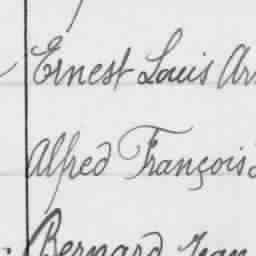 Ernest Louis Ar
Alfred François
Bernard Jean